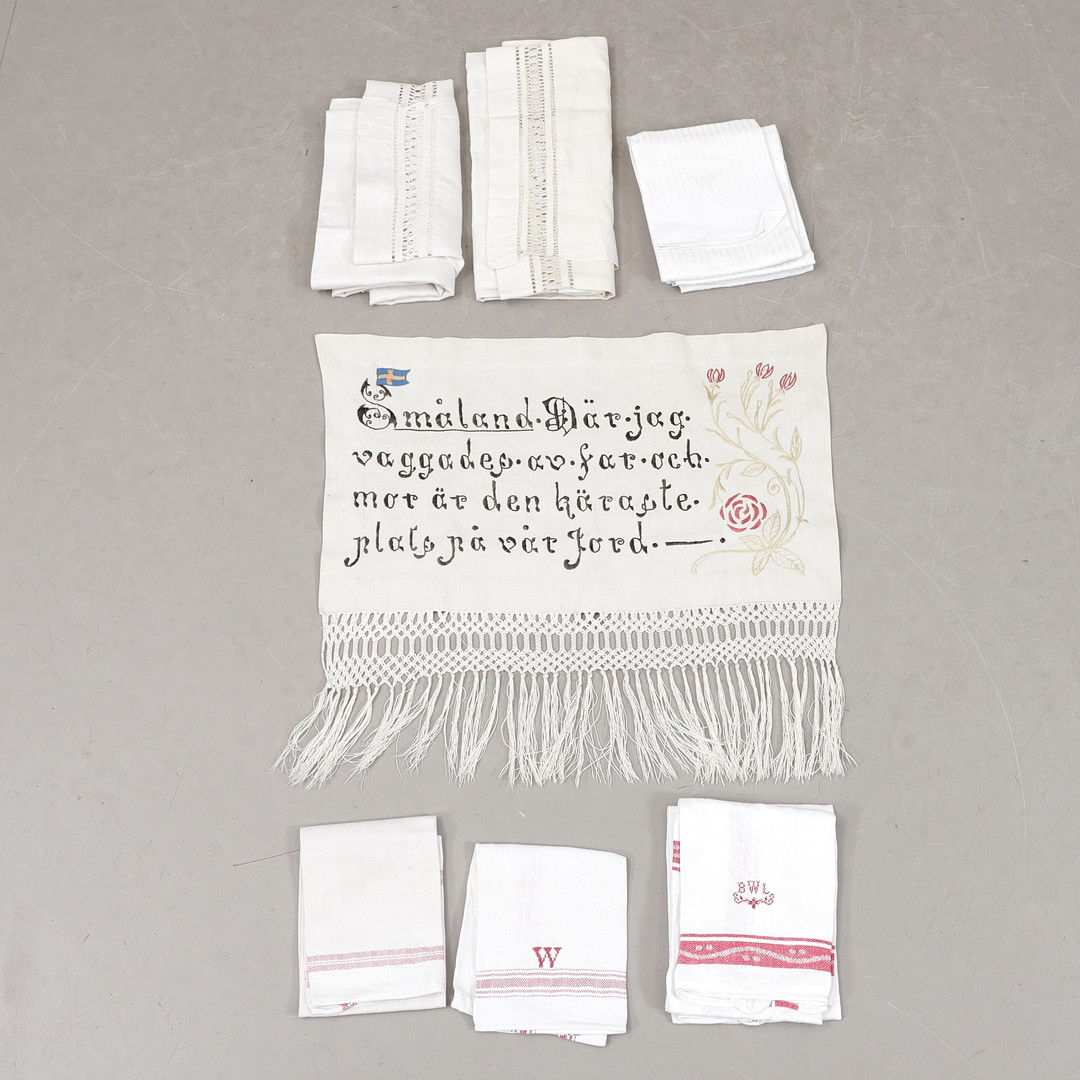 Småland·Där·jag·
vaggades·av·far·och·
mor är den käraste·
plats på vår Jord·—·
W
BWL